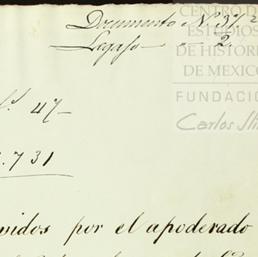 Documento Nº 37
Legajo 2.
CENTRO DE
ESTUDIOS
DE HISTORIA
DE MEXICO
FUNDACIÓN
Carlos Slim
47
.731
nidos por el apoderado